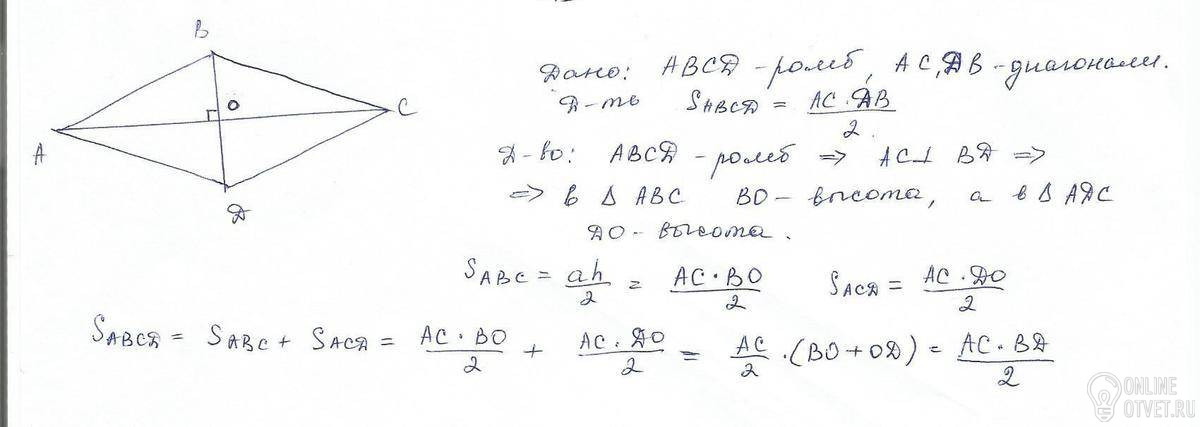 B
O
C
A
Д
Дано: ABCД - ромб, AC, ДB - диагонали.
Д-ть S_ABCД = AC · ДB / 2.
Д-во: ABCД - ромб => AC ⊥ BД =>
=> в Δ ABC BO - высота, а в Δ AДC
ДO - высота.
S_ABC = ah / 2 = AC · BO / 2 S_ACД = AC · ДO / 2
S_ABCД = S_ABC + S_ACД = AC · BO / 2 + AC · ДO / 2 = AC / 2 · (BO + OД) = AC · BД / 2
ONLINE
OTVET.RU